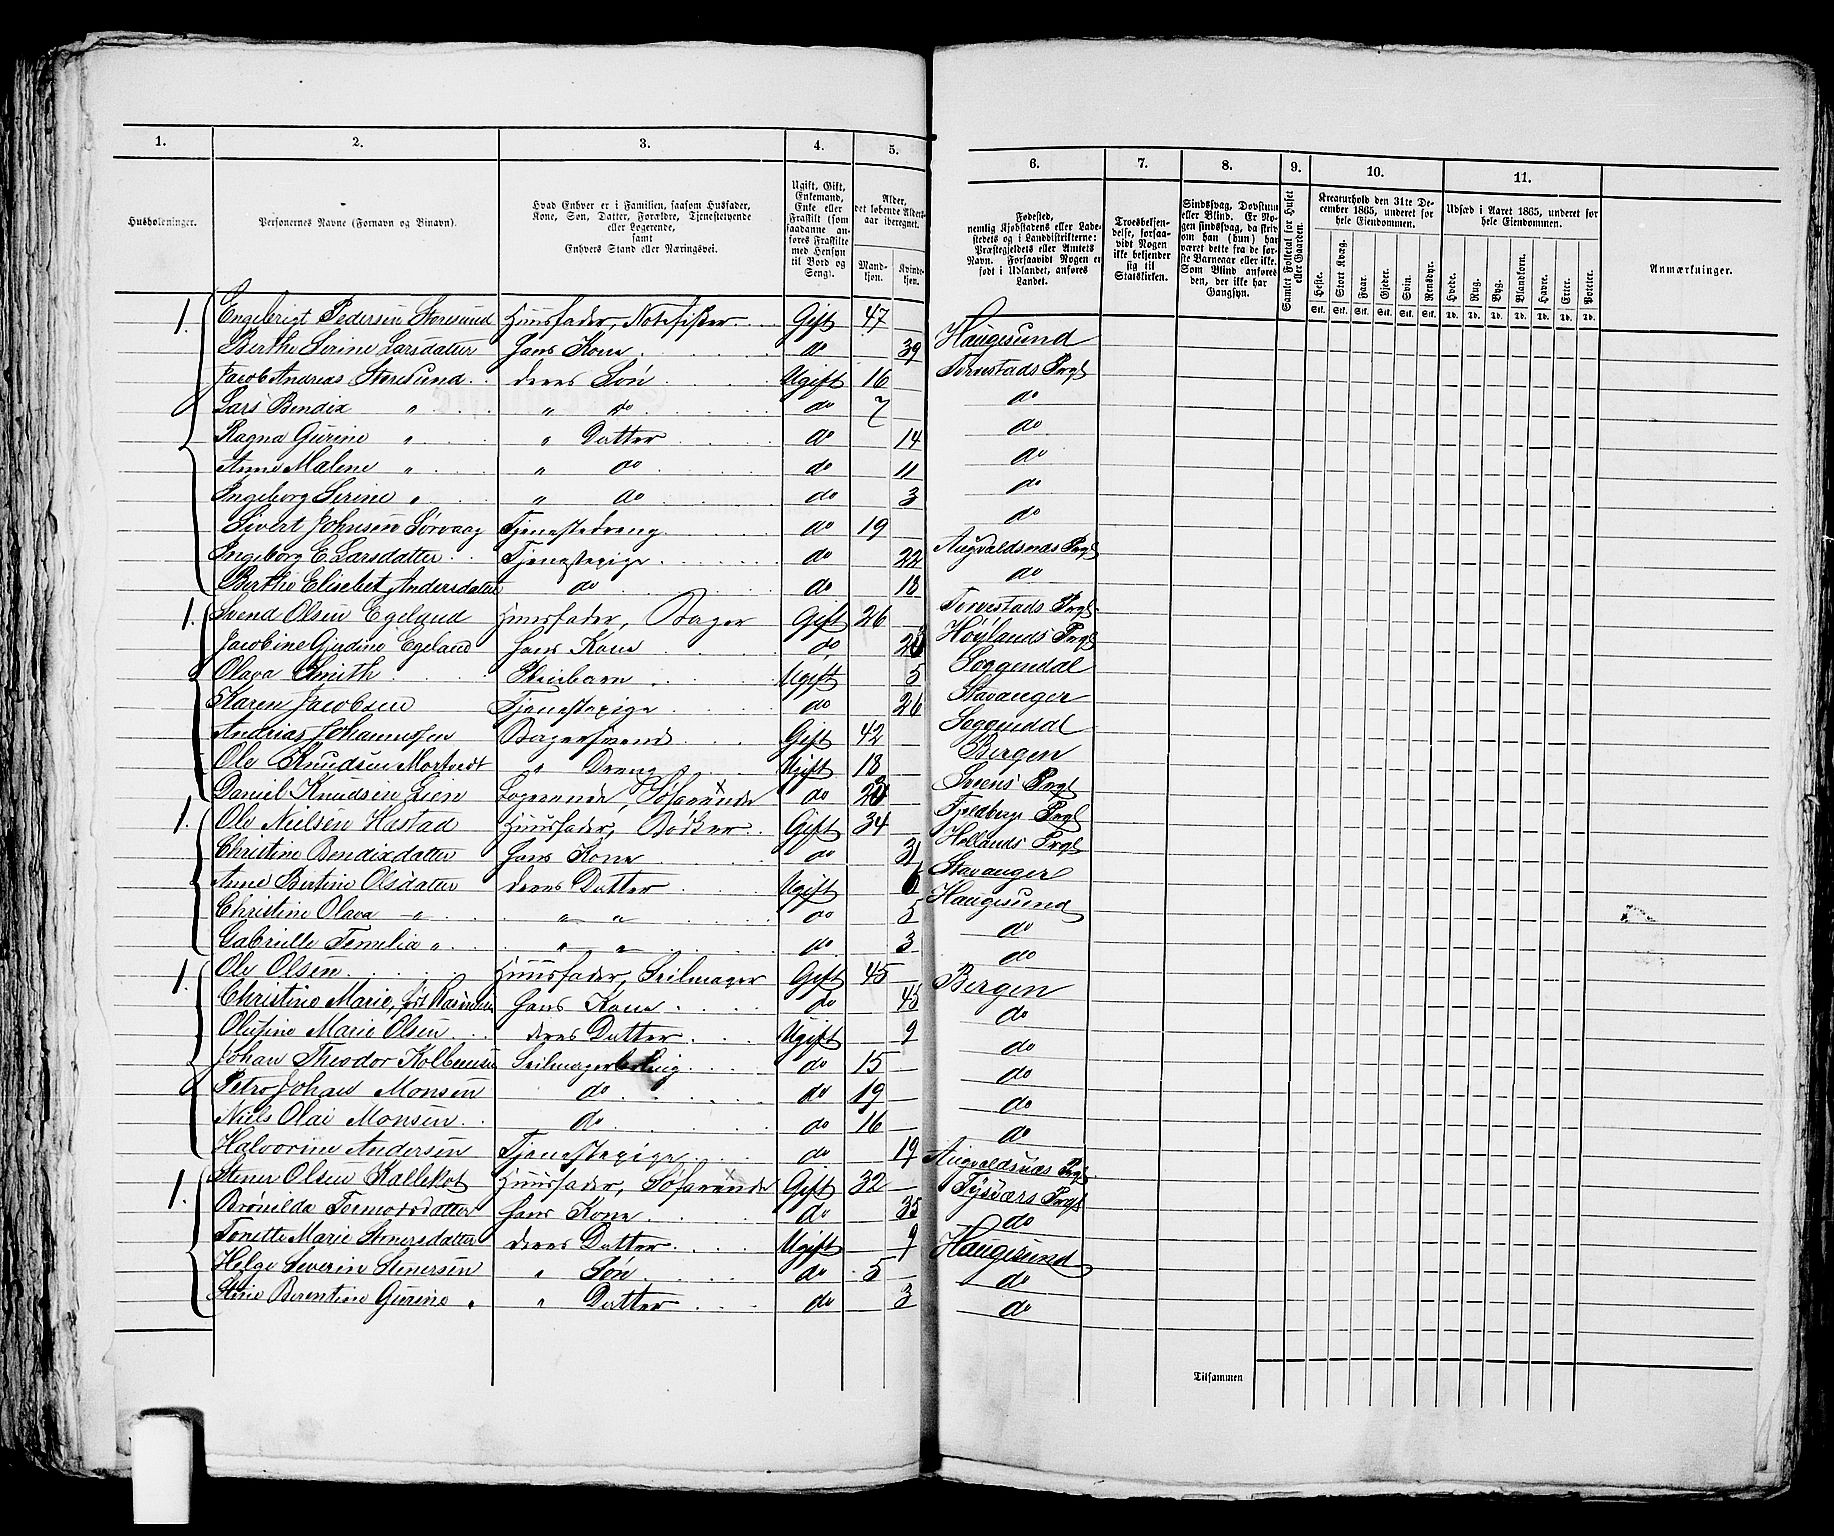 1. 2. 3. 4. 5. 6. 7. 8. 9. 10. 11.
Husholdninger.
Personernes Navne (Fornavn og Binavn).
Hvad Enhver er i Familien, saasom Husfader, Kone, Søn, Datter, Forældre, Tjenestetyende eller Logerende, samt Enhvers Stand eller Næringsvei.
Ugift, Gift, Enkemand, Enke eller Fraskilt (som saadanne anføres Fraskilte med Hensyn til Bord og Seng).
Alder, det løbende Alders-aar iberegnet.
Mand-kjøn. Kvinde-kjøn.
Fødested, nemlig Kjøbstadens eller Ladestedets og i Landdistrikterne: Præstegjeldets eller Amtets Navn. Forsaavidt Nogen er født i Udlandet, anføres Landet.
Troesbekjendelse, forsaavidt Nogen ikke bekjender sig til Statskirken.
Sindssvag, Døvstum eller Blind. Er Nogen sindssvag, da skrives om han (hun) har været dette fra de første Barneaar eller ikke. Som Blind anføres den, der ikke har Gangsyn.
Samlet Folketal for Huset eller Gaarden.
Kreaturhold den 31te December 1865, underet for hele Eiendommen.
Heste. Stort Kvæg. Faar. Gjeder. Svin. Rensdyr.
Udsæd i Aaret 1865, underet for hele Eiendommen.
Hvede. Rug. Byg. Blandkorn. Havre. Erter. Poteter.
Stk. Stk. Stk. Stk. Stk. Stk. Td. Td. Td. Td. Td. Td. Td.
Anmærkninger.
1. Engebrigt Pedersen Storesund Huusfader, Notefisker Gift 47 Haugesund
Berthe Serine Larsdatter Hans Kone do 39 Torvestads Prgl
Jacob Andreas Storesund deres Søn Ugift 16 do
Lars Bendix " " do do 7 do
Ragna Gurine " " Datter do 14 do
Anne Malene " " do do 11 do
Ingeborg Serine " " do do 3 do
Sivert Johnsen Sørvaag Tjenestedreng do 19 Augvaldsnæs Prgl
Ingeborg E Larsdatter Tjenestepige do 22 do
Berthe Elisebet Andersdatter do do 18 Torvestads Prgl
1. Svend Olsen Egeland Huusfader, Bager Gift 26 Høylands Prgl
Jacobine Gjerdine Egeland Hans Kone do Soggendal
Olava Smith Pleiebarn Ugift 5 Stavanger
Karen Jacobsen Tjenestepige do 26 Soggendal
Andreas Johannesen Bagersvend Gift 42 Bergen
Ole Knudsen Mortvedt " Dreng Ugift 18 Sveens Prgl
Daniel Knudsen Lien Logerende, Søfarende do Fjeldbergs Prgl
1. Ole Nielsen Hastad Huusfader, Bødker Gift 34 Hetlands Prgl
Christine Bendixdatter Hans Kone do 31 Stavanger
Anne Bertine Olsdatter deres Datter Ugift 6 Haugesund
Christine Olava " " " do 5 do
Gabrielle Temelia " " " do 3 do
1. Ole Olsen Huusfader, Seilmager Gift 45 Bergen
Christine Marie, født Rasmussen Hans Kone do 45 do
Olufine Marie Olsen deres Datter Ugift 9 do
Johan Theodor Kolbensen Seilmagerlærling do 15 do
Petro Johan Monsen do do 19 do
Niels Olai Monsen do do 16 do
Halvorine Andersen Tjenestepige do 19 Augvaldsnæs Prgl
1. Stener Olsen Kallekot Huusfader, Søfarende Gift 32 Tysværs Prgl
Brønilda Tormodsdatter Hans Kone do 35 do
Tonette Marie Stenersdatter deres Datter Ugift 9 Haugesund
Helge Severin Stenersen " Søn do 5 do
Berentine Gurine " " Datter do 3 do
Tilsammen